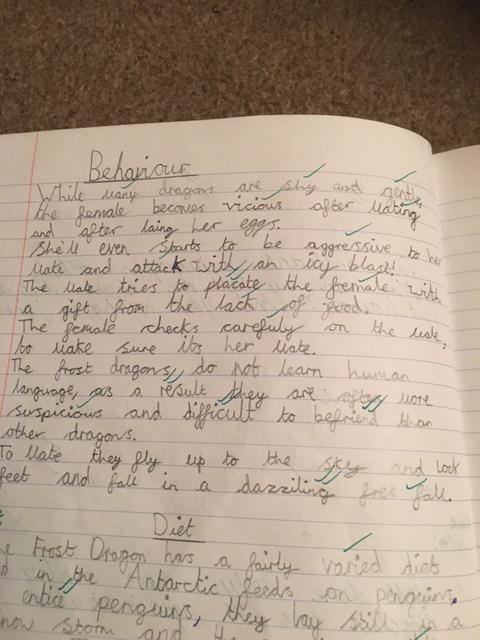 Behaviour
While many dragons are shy and gentle,
the female becomes vicious after mating
and after laing her eggs.
She'll even starts to be aggressive to her
mate and attack with an icy blast!
The male tries to placate the female with
a gift from the lack of food.
The female checks carefuly on the male,
to make sure its her mate.
The frost dragons, do not learn human
language, as a result they are often more
suspicious and difficult to befriend than
other dragons.
To mate they fly up to the sky and lock
feet and fall in a dazziling free fall.
Diet
Frost Dragon has a fairly varied diet
in the Antarctic feeds on penguins.
entice penguins, they lay still in a
snow storm and